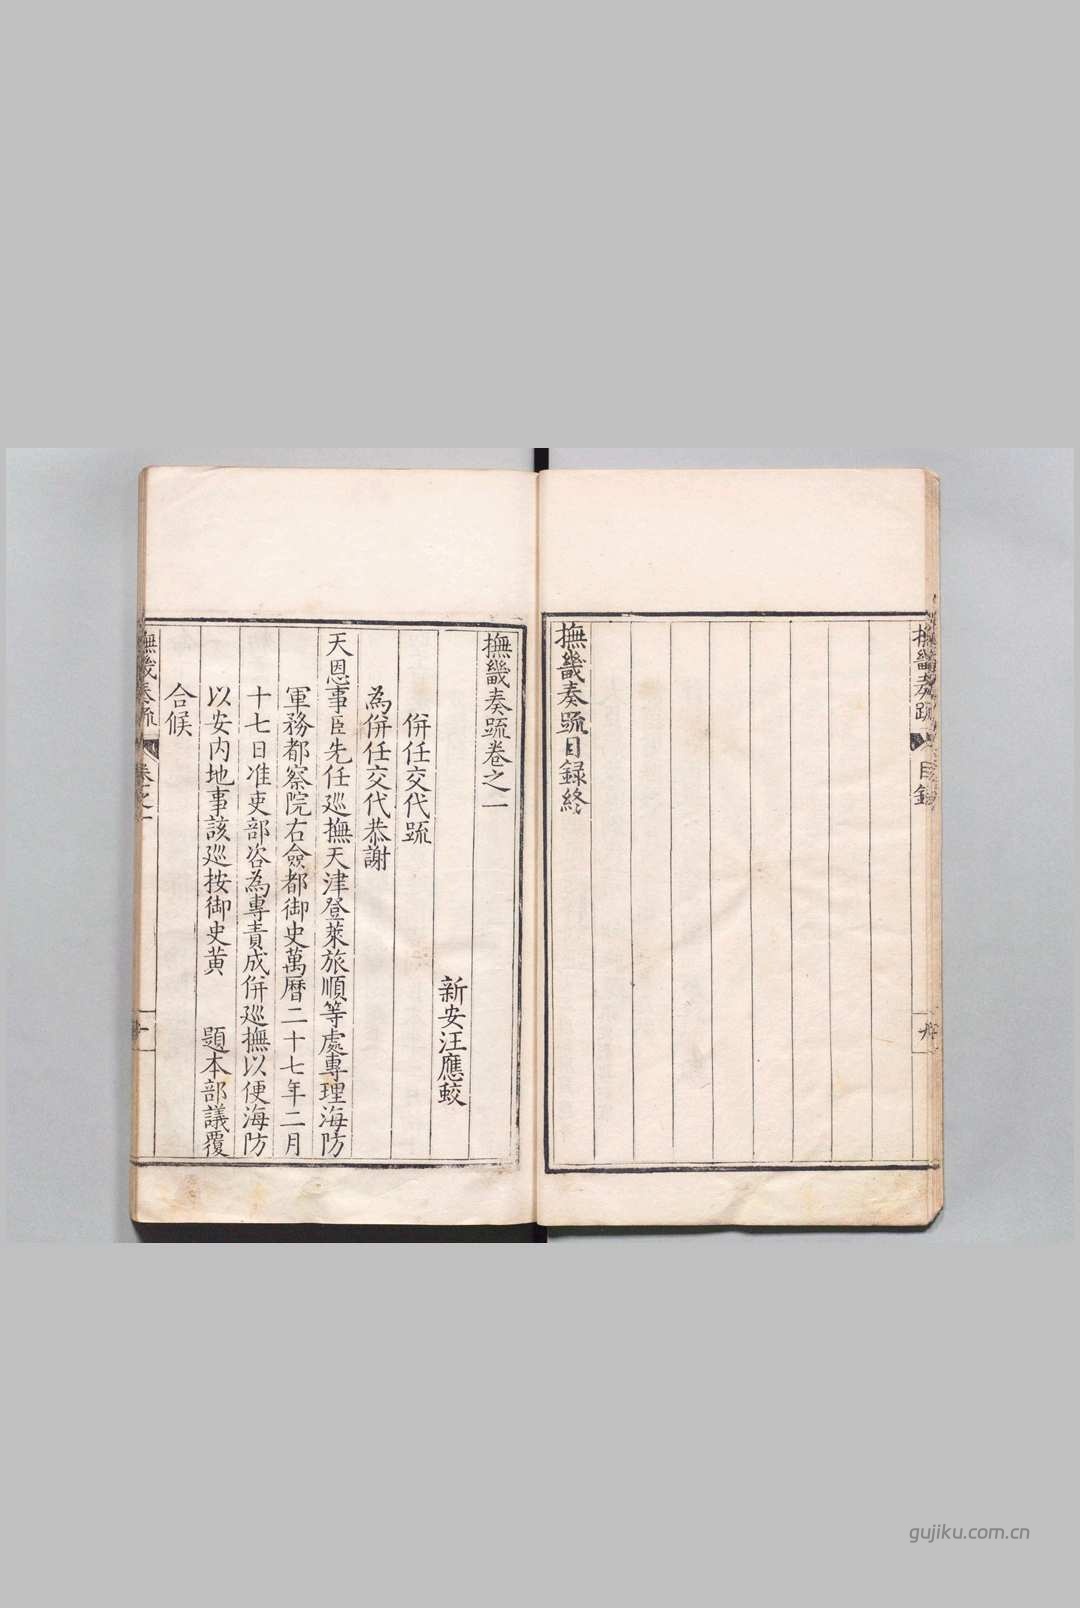 撫畿奏疏
目錄
撫畿奏疏目録終
撫畿奏疏卷之一
新安汪應蛟
併任交代疏
為併任交代恭謝
天恩事臣先任巡撫天津登萊旅順等處專理海防
軍務都察院右僉都御史萬曆二十七年二月
十七日准吏部咨為專責成併巡撫以便海防
以安內地事該巡按御史黄 題本部議覆
合候
撫畿奏疏
卷之一
gujiku.com.cn